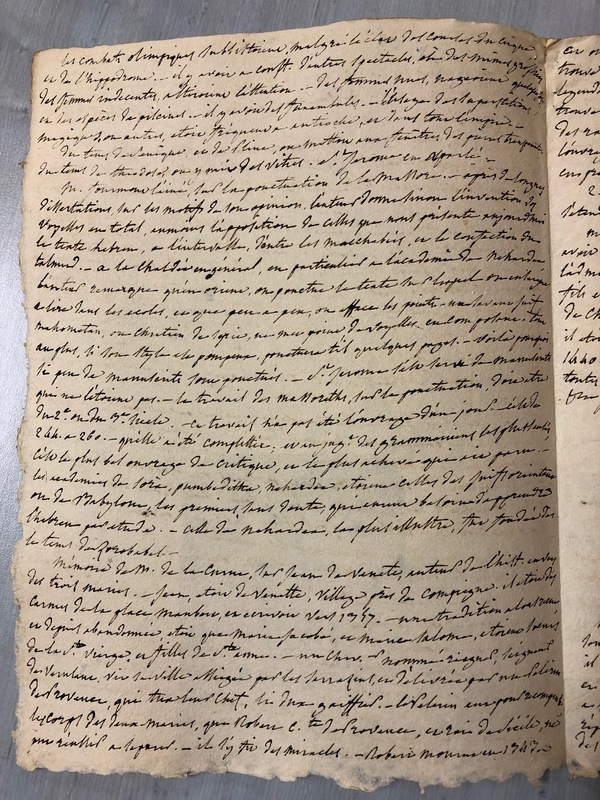 les combats olimpiques subsistoient, malgré l'éclat des courses du cirque
et de l'hippodrome. - il y avoit a const. d'autres spectacles, où des mimes grossiers
des femmes indecentes, attiroient l'attention - des femmes nues, nageoient quelquefois
en des especes de piscines. - il y avoit des funambules. - l'usage des superstitions,
magiques dominantes, étoit fréquent a antioche, et dans tout l'empire -
du tems de Seneque, et de Pline, on mettoit aux fenêtres des pierres transparentes
du tems de theodose, on y mit des vitres. - St. Jerome en parle. -
M. fourmont l'ainé, sur la ponctuation de la Massore. - après de longues
dissertations, sur les motifs de son opinion, l'auteur donne sinon l'invention des
voyelles en total, au moins l'apposition de celles que nous présente aujourd'hui
le texte hebreu, a l'intervalle, d'entre les macchabées, et la confection du
talmud. - a la Chaldée en général, en particulier a l'académie de Nehardea
l'auteur remarque qu'en orient, on ponctue le texte sur lequel on enseigne
a lire dans les ecoles, et que peu a peu, on efface les points - un savant juif
mahometan, ou chretien de Syrie, ne met point de voyelles, en composant. - tout
au plus, si son style est pompeux, ponctuera t'il quelques pages. - voila pourquoi
si peu de manuscrits sont ponctués. - St. Jerome s'est servi de manuscrits
qui ne l'étoient pas - le travail des massorethes, sur la ponctuation, doit être
du 2e. ou du 3e. siecle. - ce travail n'a pas été l'ouvrage d'un jour - c'est de
244. a 260. - qu'elle a été complettée; et au jugt. des grammairiens les plus sensés,
c'est le plus bel ouvrage de critique, et le plus achevé qui ait paru. -
les academies de Sora, pumbeditha, nehardea, étoient celles des juifs orientaux
ou de Babylone, les premiers, sans doute, qui eurent besoin d'apprendre
l'hebreu par etude. - celle de nehardea, la plus illustre, fut fondée dès
le tems de Zorobabel. -
Mémoire de M. de la Curne, sur Jean de Venete, auteur de l'hist. en vers
des trois maries. - Jean, étoit de Venette, village près de Compiegne. il étoit des
carmes de la place Maubert, et ecrivoit vers 1357. - une tradition alors reçue
et depuis abandonnée, étoit que marie Jacobé, et marie Salomé, étoient soeurs
de la Ste. vierge, et filles de Ste. anne. - un Chev. nommé seigneur
de vit sa ville assiégée par les Sarrasins, et delivrée par un Pelerin
de Provence, qui tua leur chef, - le Pelerin eut pour récompense
les corps des deux maries, que Robert Cte. de Provence, et roi de Sicile,
- il s'y fit des miracles. - Robert mourut en 1343. -